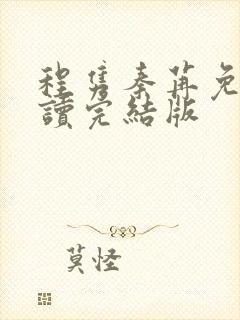 程隽秦苒免
讀完結版
莫怪